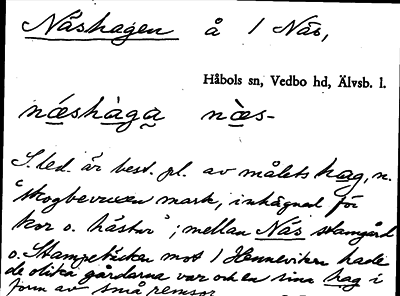 Näshagen å 1 Näs,
Håbols sn, Vedbo hd, Älvsb. l.
næshàga næ̀s-
S. led. är best. pl. av målets hag, n.
"skogbevuxen mark, inhägnad för
kor o. hästar"; mellan Näs stamgård
o. Stampetäckan mot 1 Henneviken hade
de olika gårdarna var och en sina hag i
form av små remsor